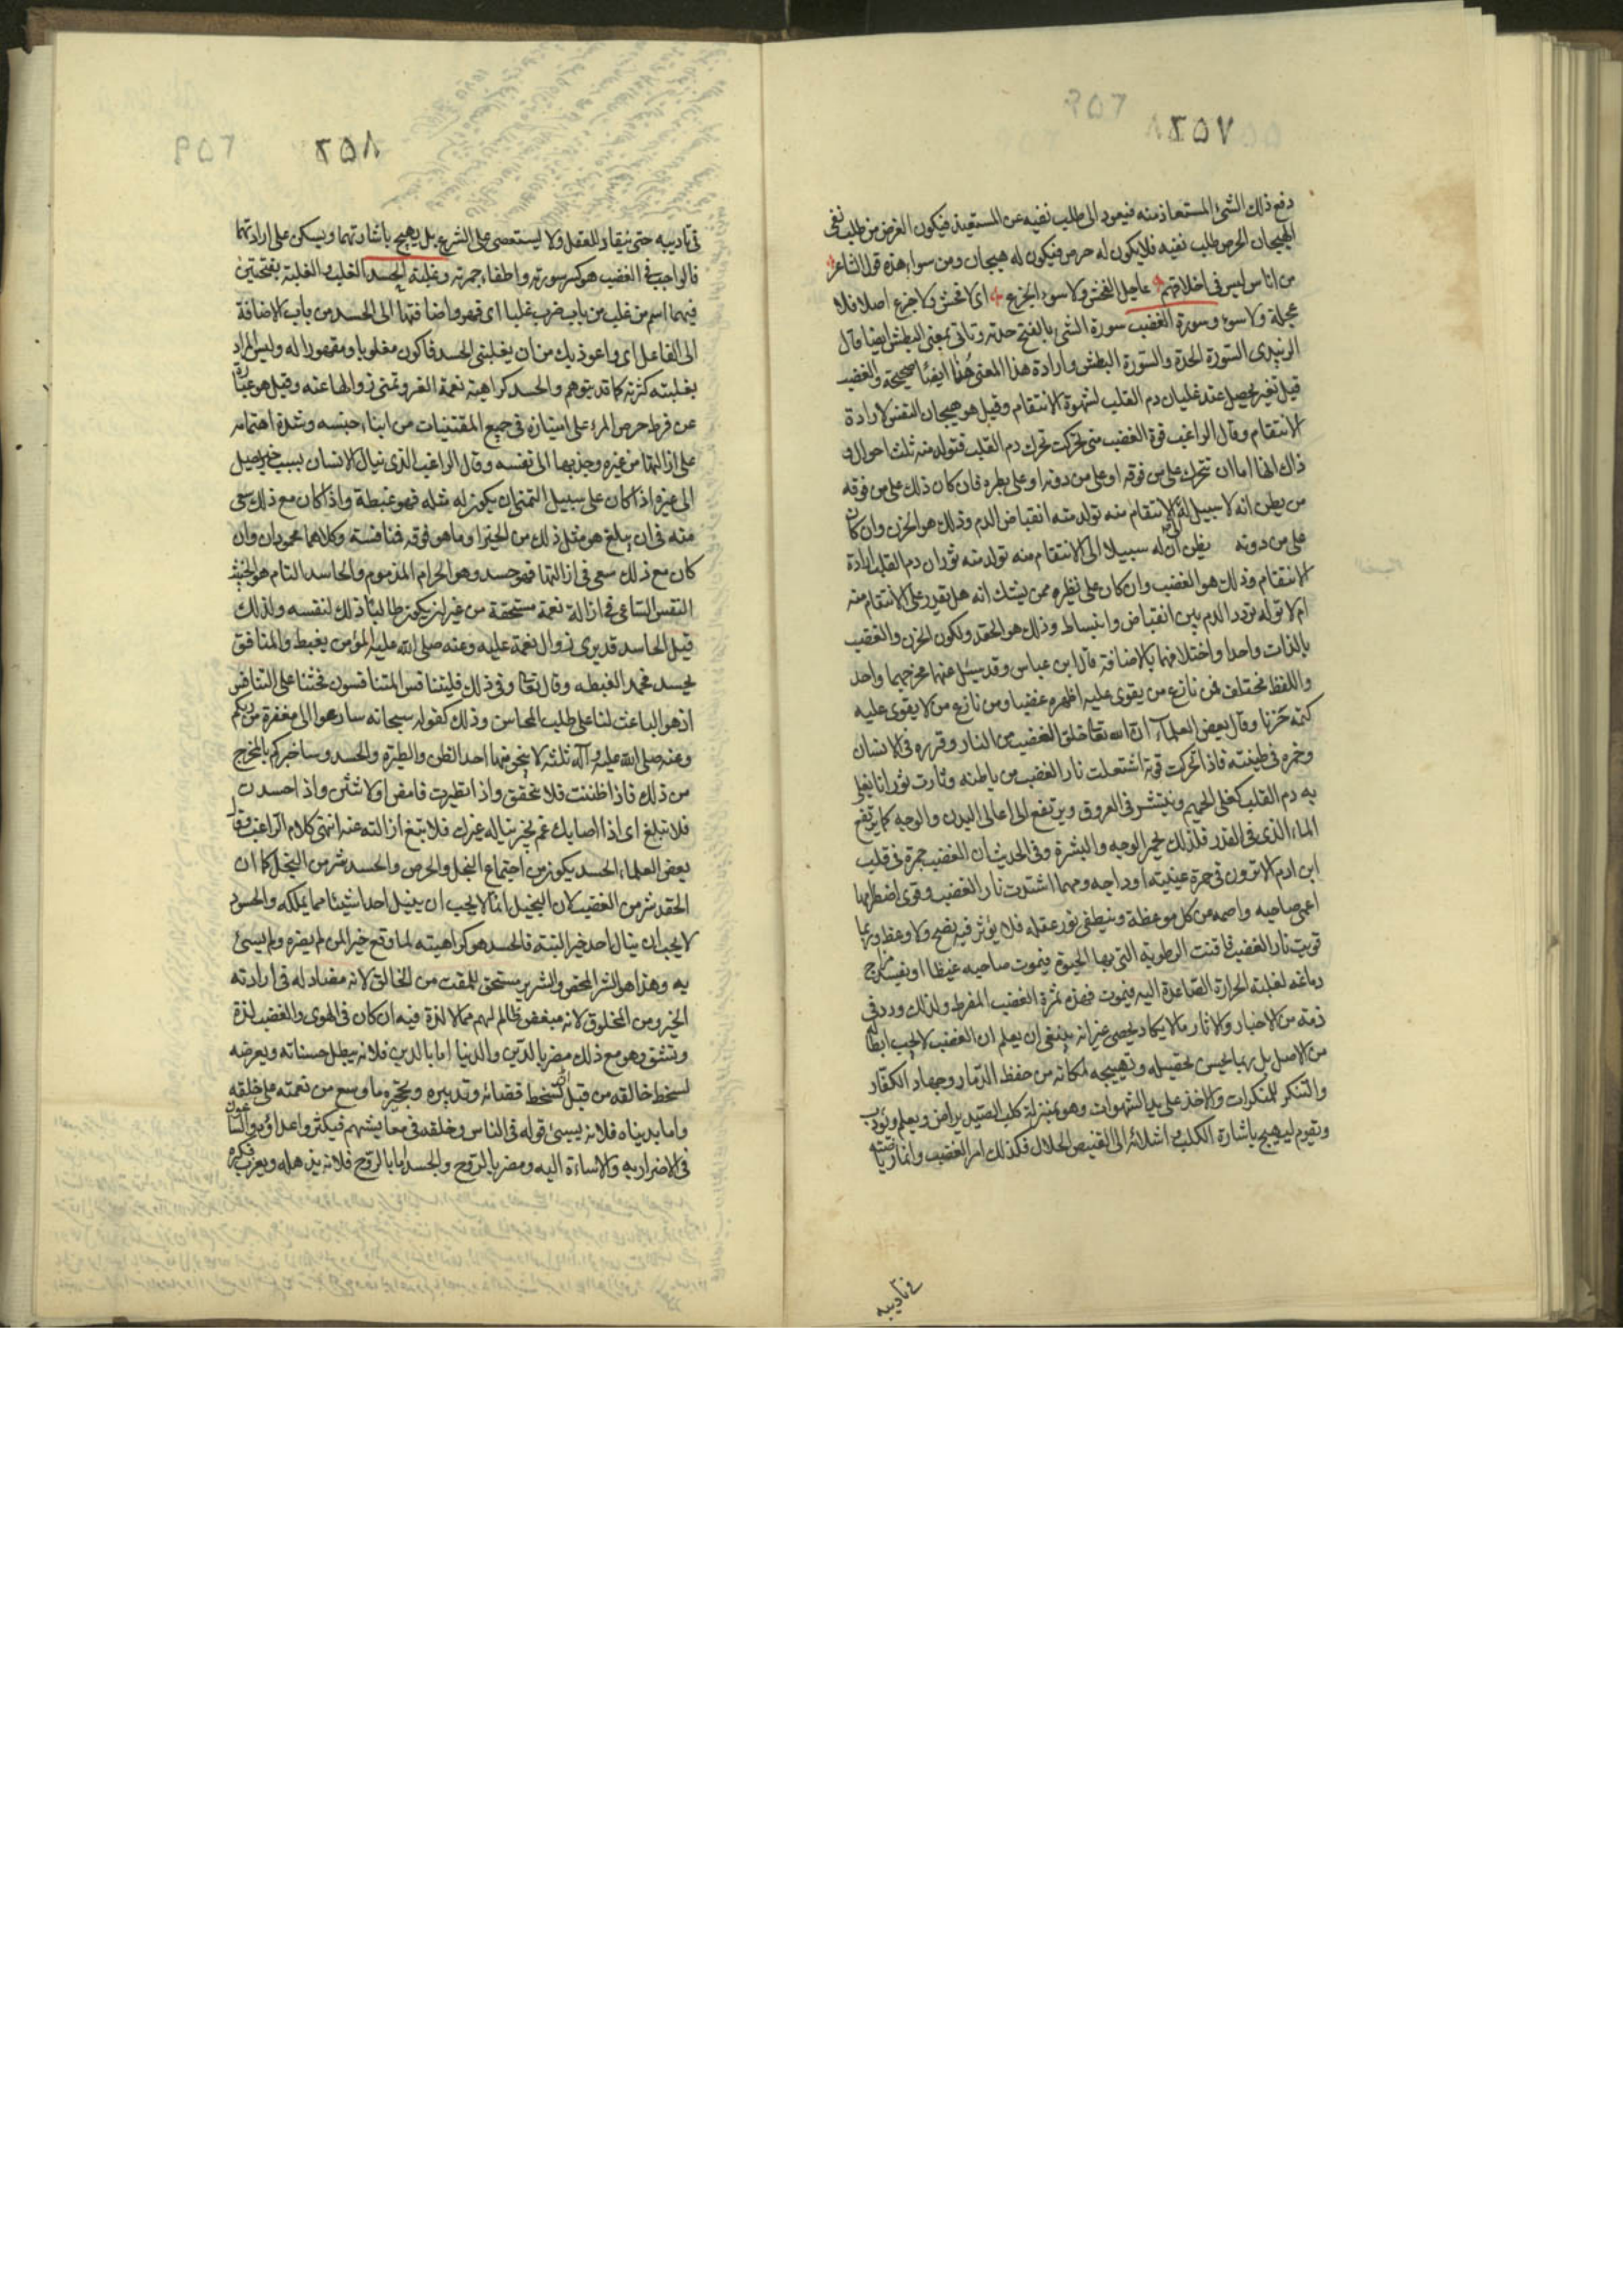 ٢٥٧
دفع ذلك الشئ المستعاذ منه فيعود الى طلب نفيه عن المستعيذ فيكون الغرض من طلب نفى
هيجان الحرص طلب نفيه فلا يكون له حرص فيكون له هيجان ومن سواء هذه قول الشاعر
من اناس ليس فى اخلاقهم عاجل الفحش ولا سوء الجزع اى لا فحش ولا جزع اصلا فلا
عجلة ولا سوء وسورة الغضب سورة الشئ بالفتح حدته وتاتى بمعنى البطش ايضا قال
الزبيدى السّورة الحدة والسّورة البطش وارادة هذا المعنى هنا ايضا صحيحة والغضب
قيل تغير يحصل عند غليان دم القلب لشهوة الانتقام وقيل هو هيجان النفس لارادة
الانتقام وقال الراغب قوة الغضب متى تحركت تحرك دم القلب فتولد منه ثلث احوال و
ذاك انها اما ان تتحرك على من فوقه او على من دونه او على نظيره فان كان ذلك على من فوقه
من يظن انه لا سبيل له الى الانتقام منه تولد منه انقباض الدم وذلك هو الحزن وان كان
على من دونه يظن ان له سبيلا الى الانتقام منه تولد منه ثوران دم القلب ارادة
الانتقام وذلك هو الغضب وان كان على نظيره ممن يشك انه هل يقدر على الانتقام منه
ام لا تولد تردد الدم بين انقباض وانبساط وذلك هو الحقد ولكون الحزن والغضب
بالذات واحدا واختلافهما بالاضافة قال ابن عباس وقد سئل عنهما مخرجهما واحد
واللفظ مختلف فمن نازع من يقوى عليه اظهره غضبا ومن نازع من لا يقوى عليه
كتمه حزنا وقال بعض العلماء ان الله تعا خلق الغضب من النار وقرره فى الانسان
وخمره فى طينته فاذا تحركت قوته اشتعلت نار الغضب من باطنه وثارت ثورانا يغلى
به دم القلب كغلى الحميم وينتشر فى العروق ويرتفع الى اعالى البدن والوجه كما يرتفع
الماء الذى فى القدر فلذلك يحمر الوجه والبشرة وفى الحديث ان الغضب جمرة فى قلب
ابن ادم الا ترون فى حمرة عينيه اوداجه ومهما اشتدت نار الغضب وقوى اضطرامها
اعمى صاحبه واصمه من كل موعظة وينطفى نور عقله فلا يؤثر فيه نصح ولا وعظ وربما
قويت نار الغضب فافنت الرطوبة التى بها الحيوة فيموت صاحبه غيظا او يفسد مزاج
دماغه لغلبة الحرارة الصّاعدة اليه فيموت فهذه ثمرة الغضب المفرط ولذلك ورد فى
ذمه من الاخبار والاثار ما لا يكاد يحصى غير انه ينبغى ان يعلم ان الغضب لا يجب ابطاله
من الاصل بل ربما يحسن تحصيله وتهييجه لمكانه من حفظ الذّمار وجهاد الكفّار
والتنكر للمنكرات والاخذ على يد الشهوات وهو بمنزلة كلب الصيد يراض ويعلم ويؤدب
ويقوم ليهيج باشارة الكلب واشلائه الى القنيص الحلال فكذلك امر الغضب وانما رياضته
فى تاديبه
٢٥٨
فى تاديبه حتى ينقاد للعقل ولا يستعصى على الشرع بل يهيج باشارتهما ويسكن على ارادتهما
فالواجب فى الغضب هو كسر سورته واطفاء جمرته وغلبة الحسد الغلب والغلبة بفتحتين
فيهما اسم من غلب من باب ضرب غلبا اى قهر واضافتها الى الحسد من باب الاضافة
الى الفاعل اى واعوذ بك من ان يغلبنى الحسد فاكون مغلوبا ومقهورا له وليس المراد
بغلبته كثرته كما قد يتوهم والحسد كراهية نعمة الغير وتمنى زوالها عنه وقيل هو عبارة
عن فرط حرص المرء على امتيازه فى جميع المقتنيات من ابناء جنسه وشدة اهتمامه
على ازالتها من غيره وجذبها الى نفسه وقال الراغب الذى ينال الانسان بسبب خير يصل
الى غيره اذا كان على سبيل التمنى ان يكون له مثله فهو غبطة واذا كان مع ذلك سعى
منه فى ان يبلغ هو مثل ذلك من الخير او ما هو فوقه فمنافسة وكلاهما محمودان وان
كان مع ذلك سعى فى ازالتها فهو حسد وهو الحرام المذموم والحاسد التام هو الخبيث
النفس السّاعى فى ازالة نعمة مستحقة من غير ان يكون طالبا ذلك لنفسه ولذلك
قيل الحاسد قد يرى زوال نعمة عليه وعنه صلى الله عليه المؤمن يغبط والمنافق
يحسد فحمد الغبطه وقال تعا وفى ذلك فليتنافس المتنافسون فحثنا على التنافس
اذ هو الباعث لنا على طلب المحاسن وذلك كقوله سبحانه سارعوا الى مغفرة من ربكم
وعنه صلى الله عليه وآله ثلثة لا ينجو منها احد الظن والطيرة والحسد وساخبركم بالمخرج
من ذلك فاذا ظننت فلا تحقق واذا تطيرت فامض ولا تنثن واذا حسدت
فلا تبلغ اى اذا اصابك غم بخير يناله غيرك فلا تبغ ازالته عنه انتهى كلام الراغب وقال
بعض العلماء الحسد يكون من اجتماع البخل والحرص والحسد شر من البخل كما ان
الحقد شر من الغضب لان البخيل انما لا يحب ان ينيل احدا شيئا مما يملكه والحسود
لا يحب ان ينال احد خيرا البتة فالحسد هو كراهيته لما وقع خيرا لمن لم يضره ولم يسئ
به وهذا هو الشر المحض والشرير مستحق للمقت من الخالق لانه مضاد له فى ارادته
الخير ومن المخلوق لانه مبغض ظالم لهم مما لا لذة فيه ان كان فى الهوى والغضب لذة
وتشفّ وهو مع ذلك مضر بالدّين والدنيا اما بالدين فلانه يبطل حسناته ويعرضه
لسخط خالقه من قبل تسخط قضائه وتدبيره وتحجيره ما وسع من نعمته على خلقه
واما بدنياه فلانه يسئ قوله فى الناس وخلقه فى معايشهم فيكثر واعداؤه
فى الاضرار به والاساءة اليه ومضر بالرّوح والجسد اما بالرّوح فلانه يذهله ويعزب فكره